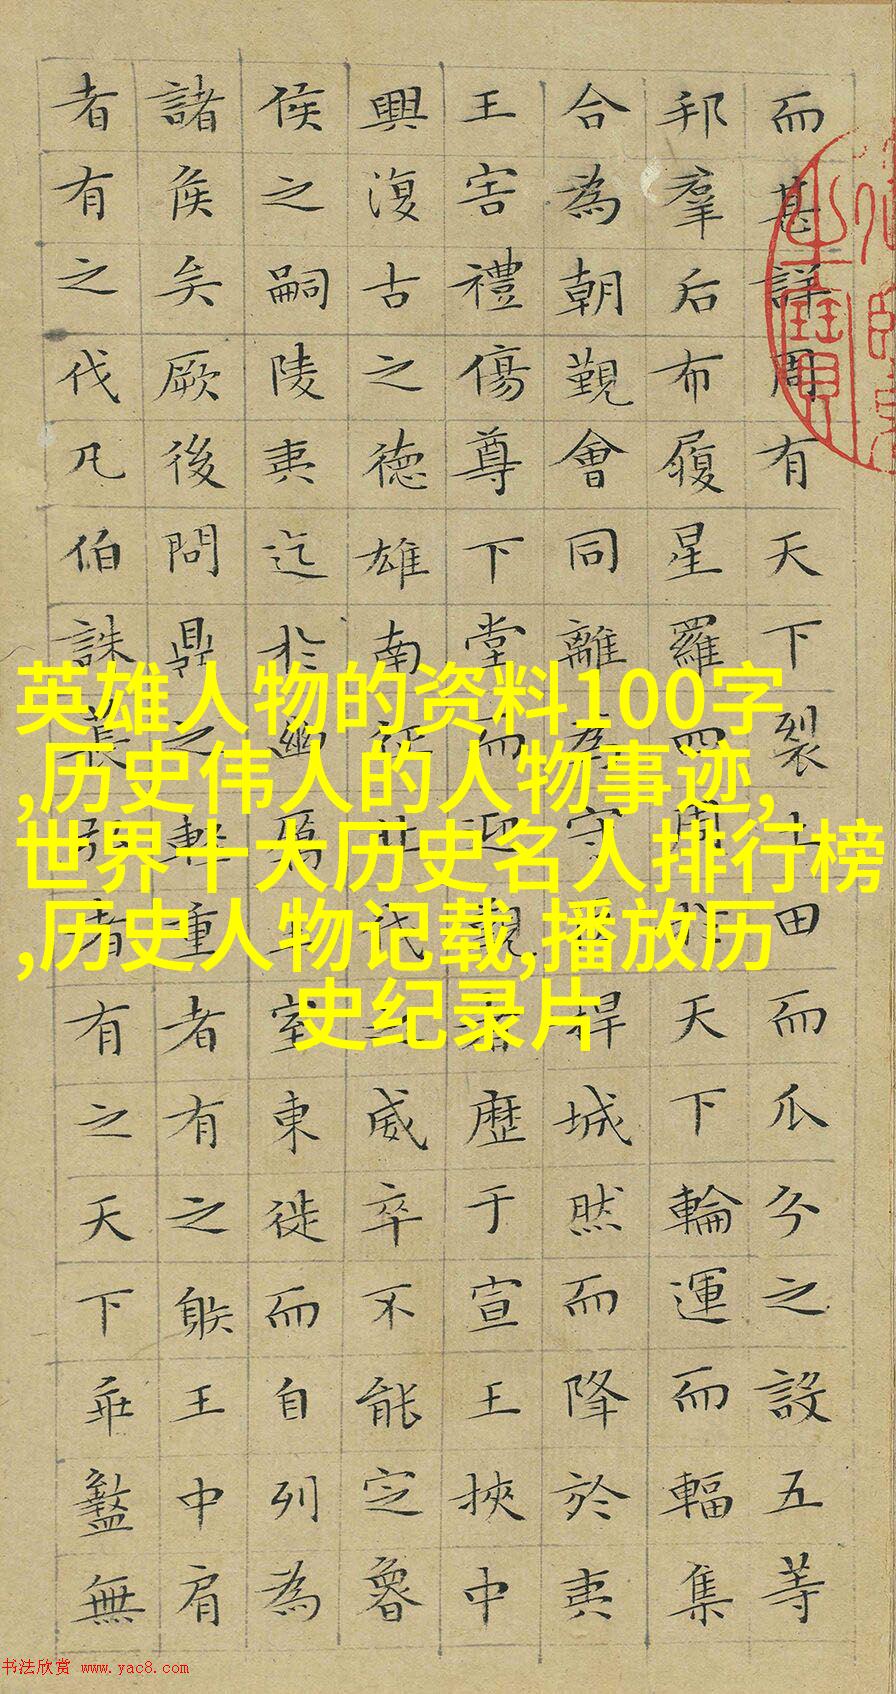 而甚詳周有天下裂土田而瓜分之設五等
邦羣后布履星羅四周于天下輪運而輻集
合為朝覲會同離為守臣捍城然而降於夷
王害禮傷尊下堂而迎覲者歷于宣王挾中
興復古之德雄南征北伐之威卒不能定魯
侯之嗣陵夷迄於幽厲王室東徙而自列為
諸侯矣厥後問鼎之輕重者有之䠶王中肩
者有之伐凡伯誅萇弘者有之天下乖盭無
英雄人物的资料100字
,历史伟人的人物事迹,
世界十大历史名人排行榜
,历史人物记载,播放历
史纪录片
书法欣赏 www.yac8.com